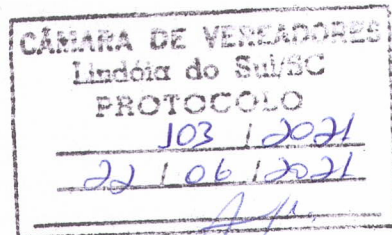 CÂMARA DE VEREADORES
Lindóia do Sul/SC
PROTOCOLO
103 / 2021
22 / 06 / 2021